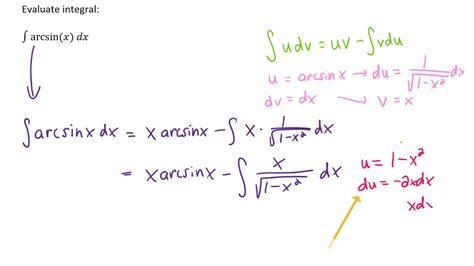 Evaluate integral:
∫ arcsin(x) dx
∫udv = uv - ∫vdu
u = arcsinx → du = 1/√(1-x²) dx
dv = dx → v = x
∫arcsinx dx = x arcsinx - ∫ x · 1/√(1-x²) dx
= x arcsinx - ∫ x/√(1-x²) dx
u = 1-x²
du = -2xdx
xd